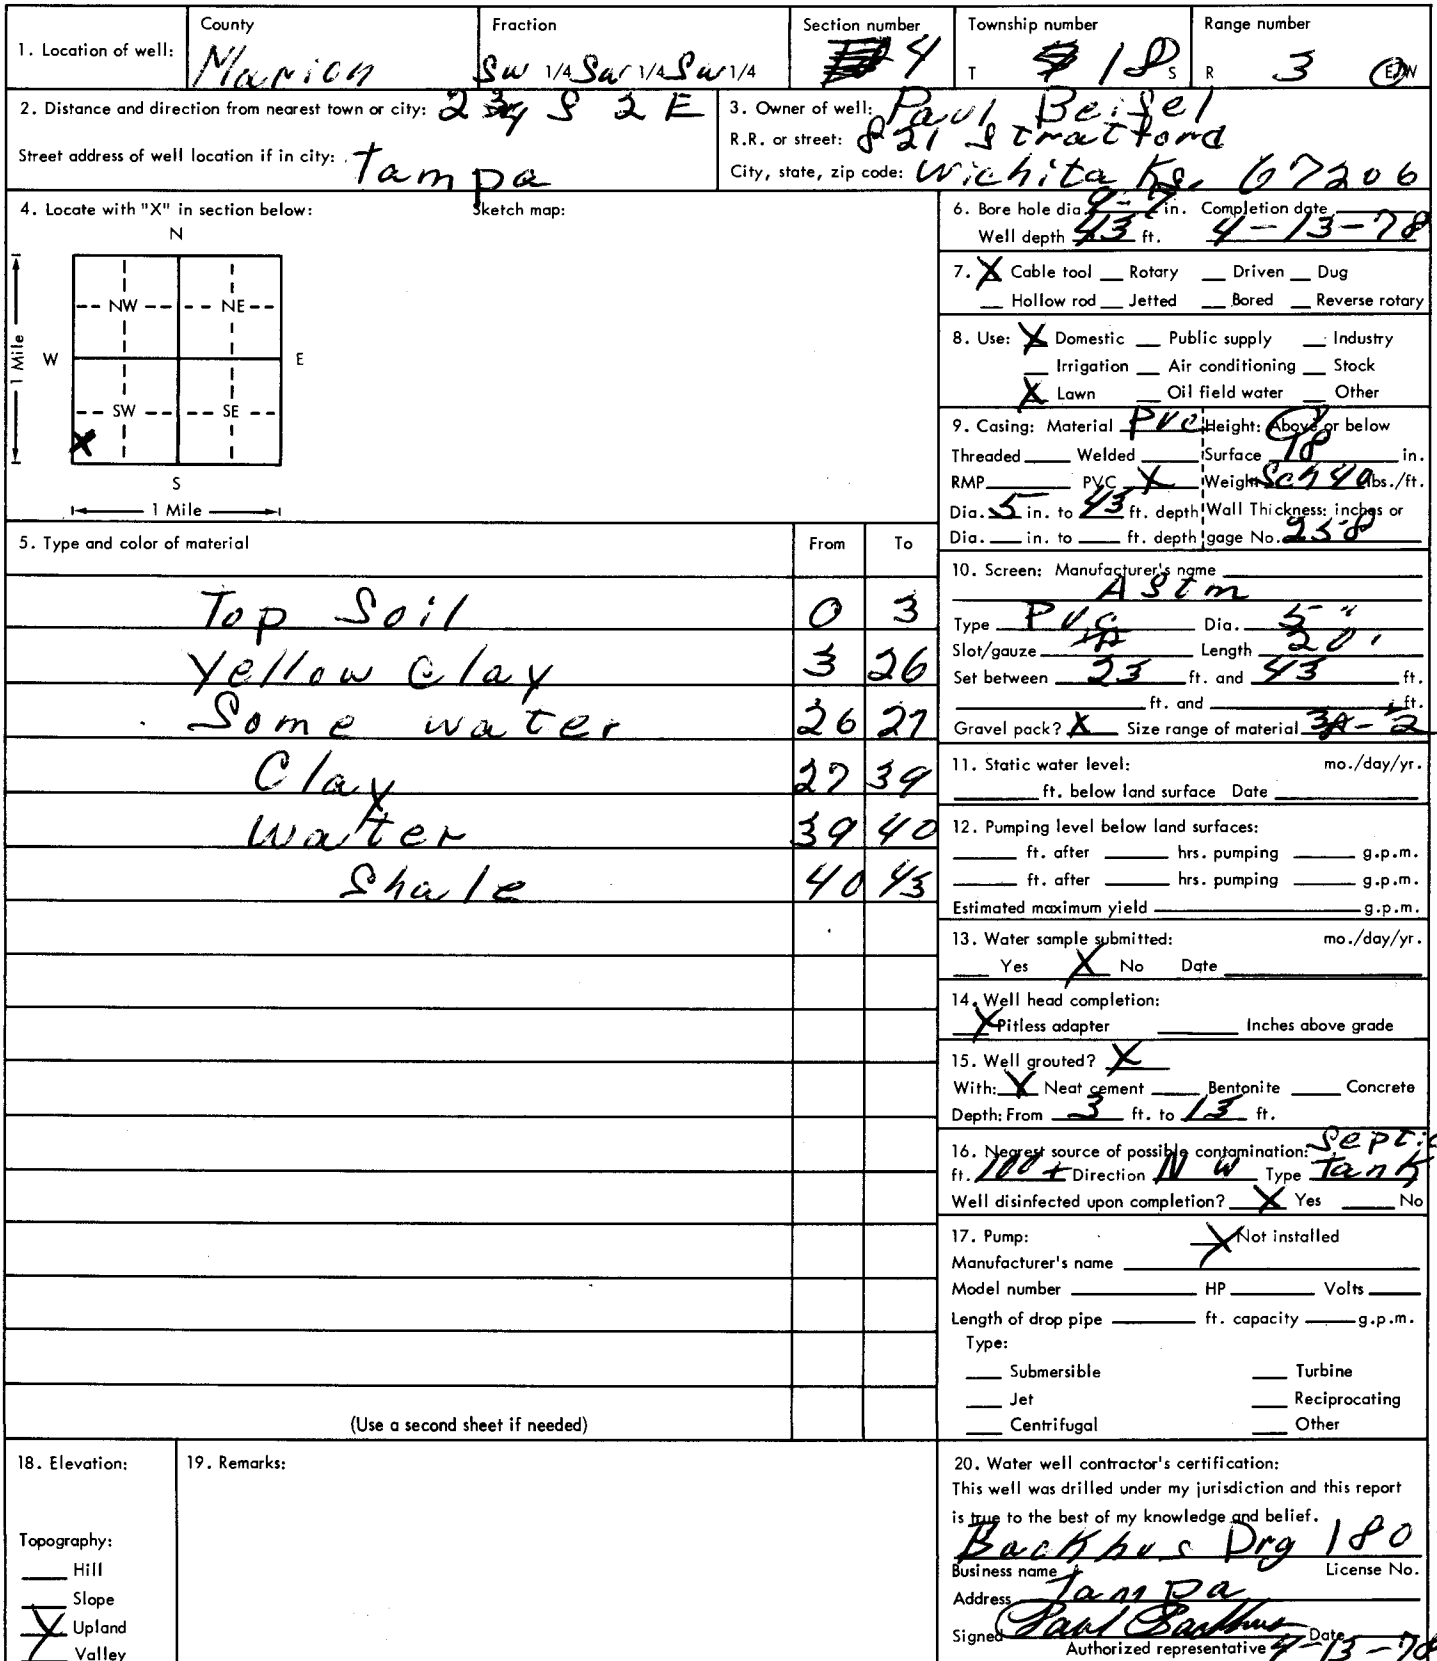 County Fraction Section number Township number Range number
1. Location of well: Marion SW 1/4 SW 1/4 SW 1/4 4 T 18 S R 3 E/W
2. Distance and direction from nearest town or city: 2 3/4 S 2 E
Street address of well location if in city: Tampa
3. Owner of well: Paul Beisel
R.R. or street: 821 Stratford
City, state, zip code: Wichita Ks. 67206
4. Locate with "X" in section below: Sketch map:
N
NW NE
W E
1 Mile
SW SE
X
S
1 Mile
5. Type and color of material From To
Top Soil 0 3
Yellow Clay 3 26
Some water 26 27
Clay 27 39
Water 39 40
Shale 40 43
(Use a second sheet if needed)
6. Bore hole dia. 9-7 in. Completion date
Well depth 43 ft. 4-13-78
7. X Cable tool __ Rotary __ Driven __ Dug
__ Hollow rod __ Jetted __ Bored __ Reverse rotary
8. Use: X Domestic __ Public supply __ Industry
__ Irrigation __ Air conditioning __ Stock
X Lawn __ Oil field water __ Other
9. Casing: Material PVC Height: Above or below
Threaded ____ Welded ____ Surface 18 in.
RMP ____ PVC X Weight Sch 40 lbs./ft.
Dia. 5 in. to 43 ft. depth Wall Thickness: inches or
Dia. ___ in. to ___ ft. depth gage No. 258
10. Screen: Manufacturer's name
Astm
Type PVC Dia. 5"
Slot/gauze Length 20'
Set between 23 ft. and 43 ft.
____ ft. and ____ ft.
Gravel pack? X Size range of material
11. Static water level: mo./day/yr.
____ ft. below land surface Date ____
12. Pumping level below land surfaces:
____ ft. after ____ hrs. pumping ____ g.p.m.
____ ft. after ____ hrs. pumping ____ g.p.m.
Estimated maximum yield ____ g.p.m.
13. Water sample submitted: mo./day/yr.
__ Yes X No Date ____
14. Well head completion:
X Pitless adapter ____ Inches above grade
15. Well grouted? X
With: X Neat cement ____ Bentonite ____ Concrete
Depth: From 3 ft. to 13 ft.
16. Nearest source of possible contamination: Septic
ft. 100+ Direction NW Type Tank
Well disinfected upon completion? X Yes ____ No
17. Pump: X Not installed
Manufacturer's name ____
Model number ____ HP ____ Volts ____
Length of drop pipe ____ ft. capacity ____ g.p.m.
Type:
__ Submersible __ Turbine
__ Jet __ Reciprocating
__ Centrifugal __ Other
18. Elevation:
Topography:
__ Hill
__ Slope
X Upland
__ Valley
19. Remarks:
20. Water well contractor's certification:
This well was drilled under my jurisdiction and this report
is true to the best of my knowledge and belief.
Backhus Drg 180
Business name License No.
Address Tampa
Signed Paul Backhus Date 4-13-78
Authorized representative